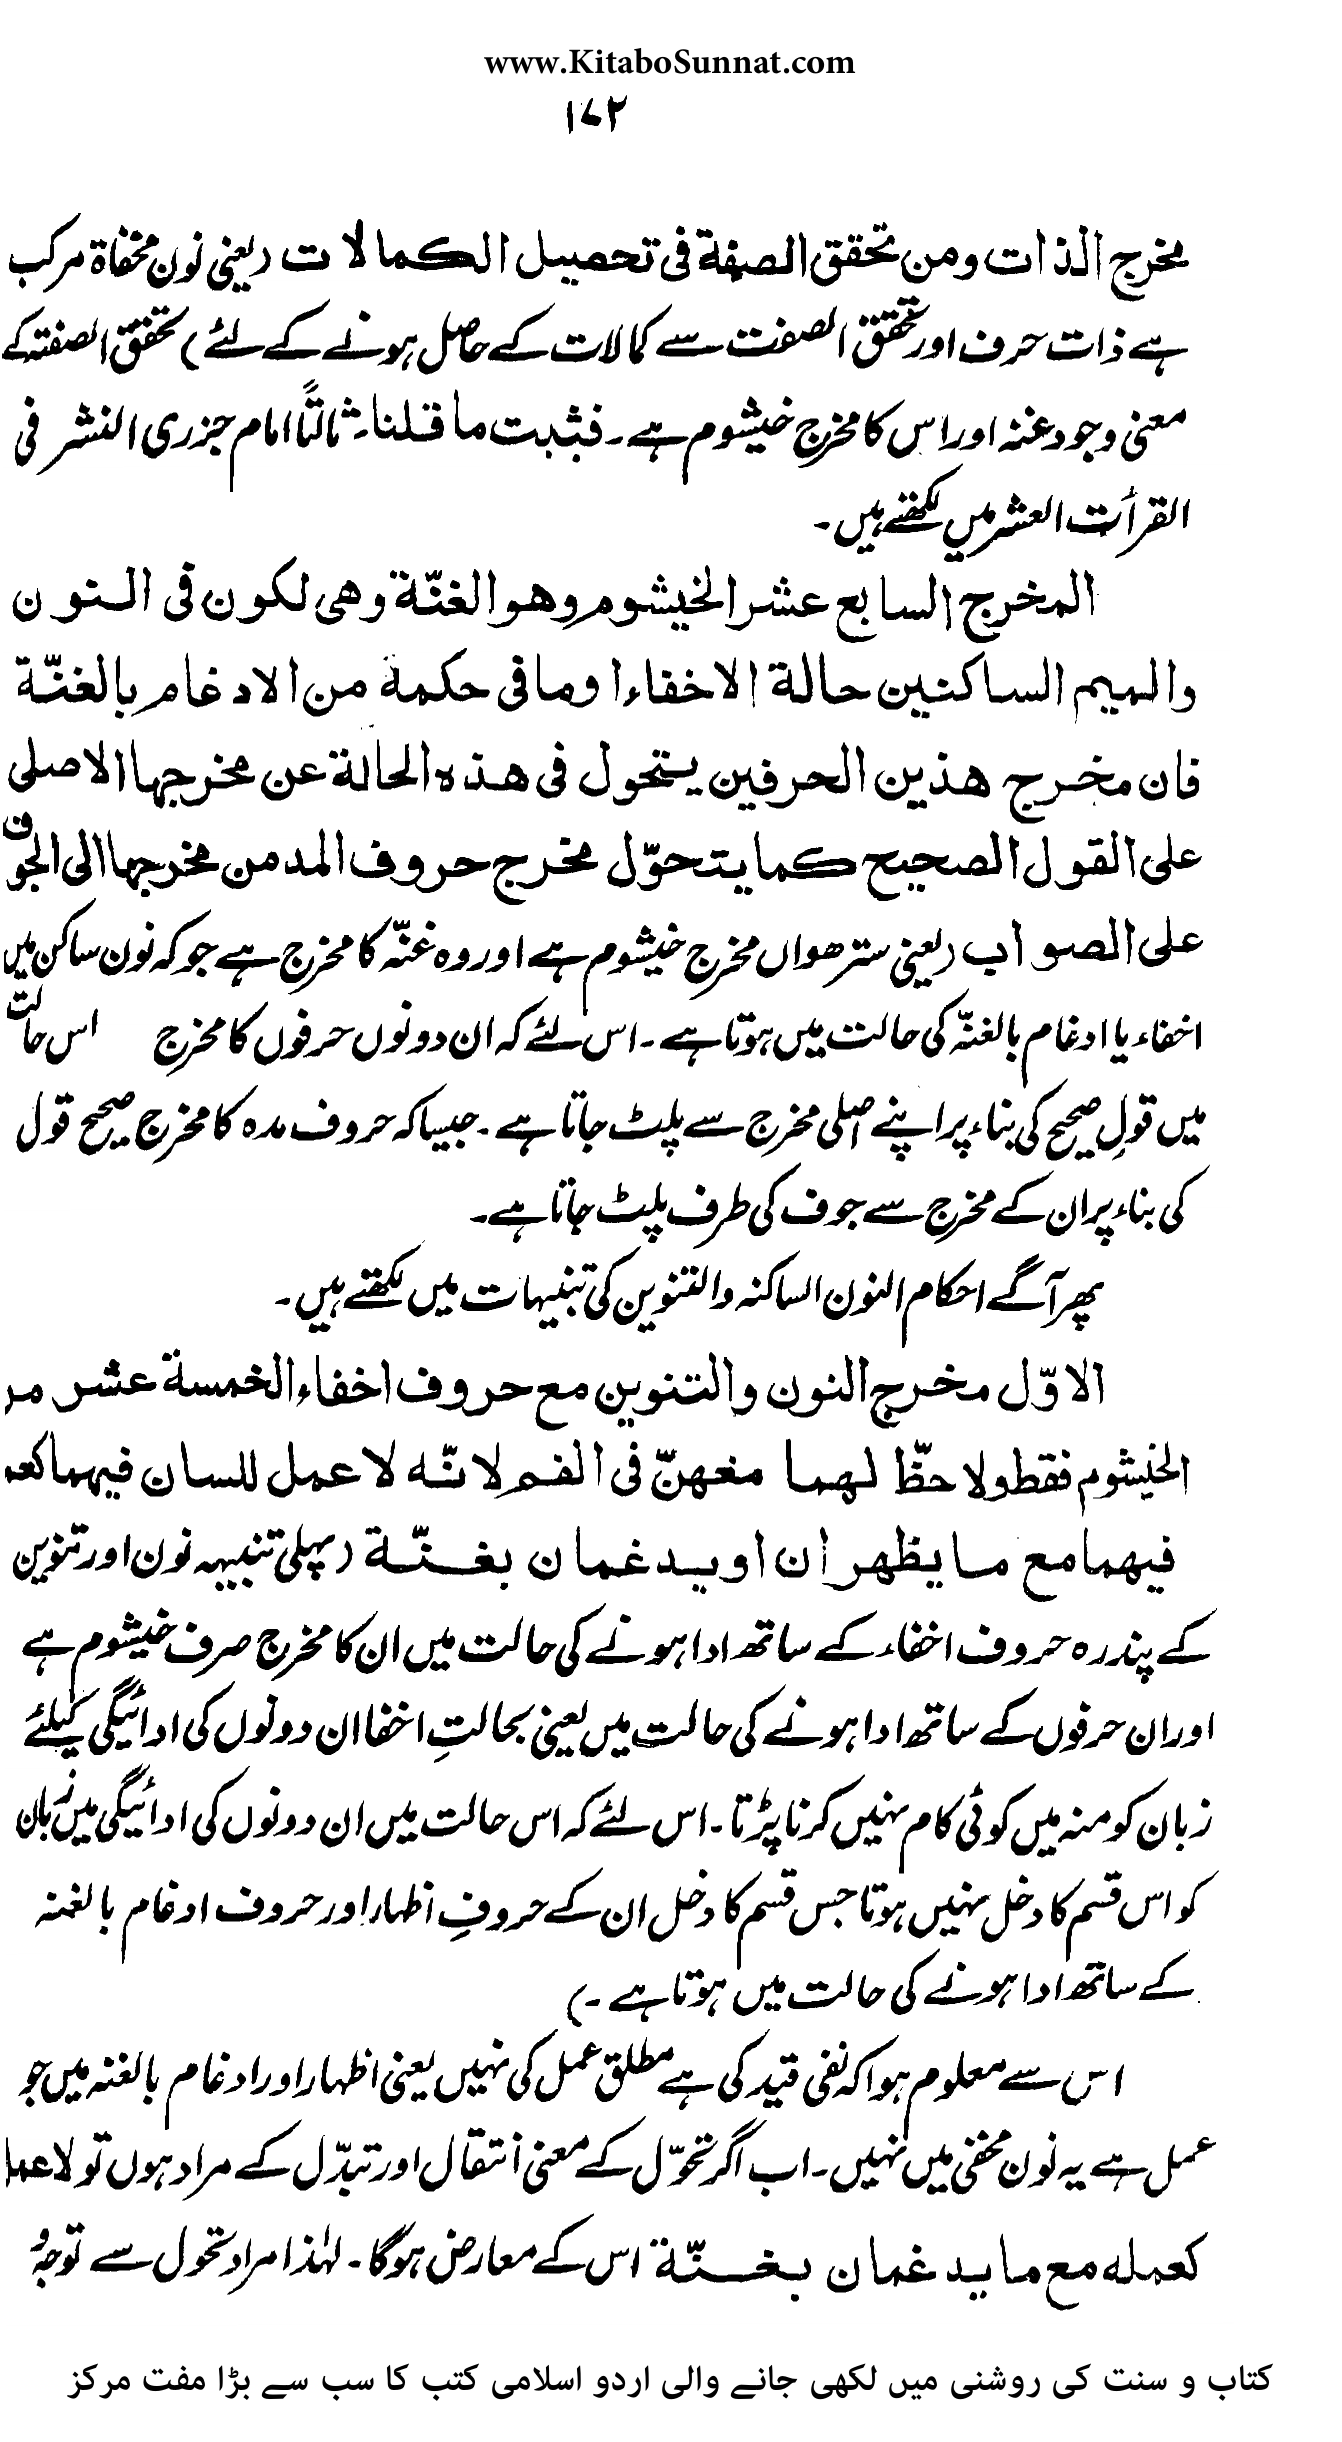 www.KitaboSunnat.com
۱۷۲
مخرج الذات ومن تحقق الصفة فی تحصیل الکمالات (یعنی نون مخفاة مرکب
ہے ذات حرف اور تحقق الصفت سے کمالات کے حاصل ہونے کے لئے) تحقق الصفتہ کے
معنی وجود غنہ اور اس کا مخرج خیشوم ہے۔ فثبت ما قلنا۔ ثالثاً امام جزری النشر فی
القرأت العشر میں لکھتے ہیں۔
المخرج السابع عشر الخیشوم وهو الغنّة وهی لکون فی النون
والمیم الساکنین حالة الاخفاء او ما فی حکمة من الادغام بالغنّة
فان مخرج هذین الحرفین یتحول فی هذه الحالة عن مخرجها الاصلی
علی القول الصحیح کما یتحوّل مخرج حروف المد من مخرجها الی الجوف
علی الصواب (یعنی سترھواں مخرج خیشوم ہے اور وہ غنّہ کا مخرج ہے جو کہ نون ساکن میں
اخفاء یا ادغام بالغنّہ کی حالت میں ہوتا ہے۔ اس لئے کہ ان دونوں حرفوں کا مخرج اس حالت
میں قولِ صحیح کی بناء پر اپنے اصلی مخرج سے پلٹ جاتا ہے۔ جیسا کہ حروف مدہ کا مخرج صحیح قول
کی بناء پر ان کے مخرج سے جوف کی طرف پلٹ جاتا ہے۔
پھر آگے احکام النون الساکنہ والتنوین کی تنبیہات میں لکھتے ہیں۔
الاوّل مخرج النون والتنوین مع حروف اخفاء الخمسة عشر من
الخیشوم فقط ولا حظّ لهما معهنّ فی الفم لانّه لا عمل للسان فیهما کعمله
فیهما مع ما یظهران او یدغمان بغنّة (پہلی تنبیہہ نون اور تنوین
کے پندرہ حروف اخفاء کے ساتھ ادا ہونے کی حالت میں ان کا مخرج صرف خیشوم ہے
اور ان حرفوں کے ساتھ ادا ہونے کی حالت میں یعنی بحالتِ اخفا ان دونوں کی ادائیگی کیلئے
زبان کو منہ میں کوئی کام نہیں کرنا پڑتا۔ اس لئے کہ اس حالت میں ان دونوں کی ادائیگی میں زبان
کو اس قسم کا دخل نہیں ہوتا جس قسم کا دخل ان کے حروفِ اظہار اور حروف ادغام بالغنہ
کے ساتھ ادا ہونے کی حالت میں ہوتا ہے۔)
اس سے معلوم ہوا کہ نفی قید کی ہے مطلق عمل کی نہیں یعنی اظہار اور ادغام بالغنہ میں جو
عمل ہے یہ نون مخفی میں نہیں۔ اب اگر تحوّل کے معنی انتقال اور تبدّل کے مراد ہوں تو لا عمل
کعمله مع ما یدغمان بغنّة اس کے معارض ہوگا۔ لہٰذا مراد تحول سے توجہ و
کتاب و سنت کی روشنی میں لکھی جانے والی اردو اسلامی کتب کا سب سے بڑا مفت مرکز